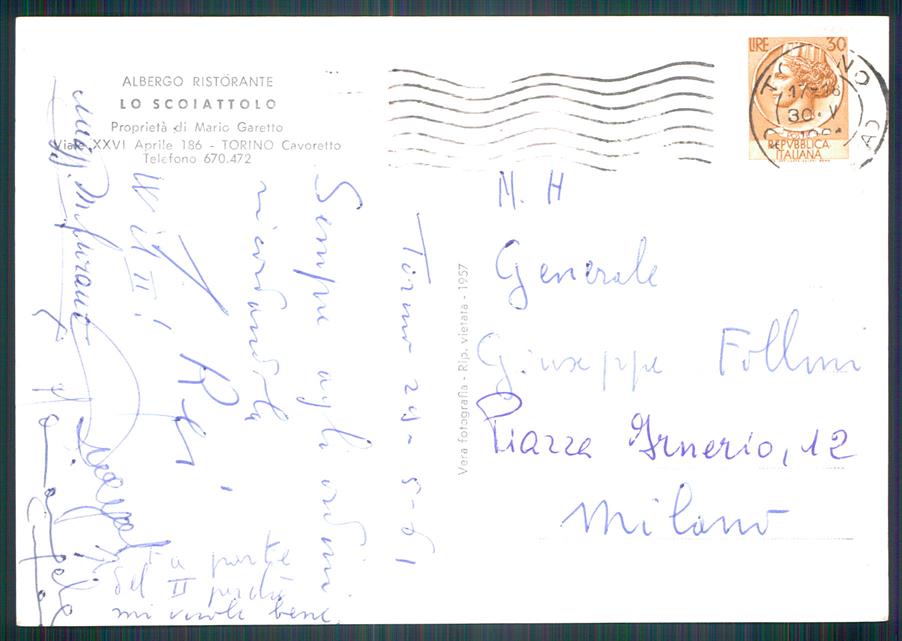 ALBERGO RISTORANTE
LO SCOIATTOLO
Proprietà di Mario Garetto
Viale XXVI Aprile 186 - TORINO Cavoretto
Telefono 670.472
LIRE 30
TORINO
17-18
30 V
REPVBBLICA
ITALIANA
Vera fotografia - Rip. vietata - 1957
N. H
Generale
Giuseppe Follini
Piazza Irnerio, 12
Milano
Torino 29-5-61
Sempre agli ordini
ricordandola
W il II!
Fa parte
del II perchè
mi vuole bene